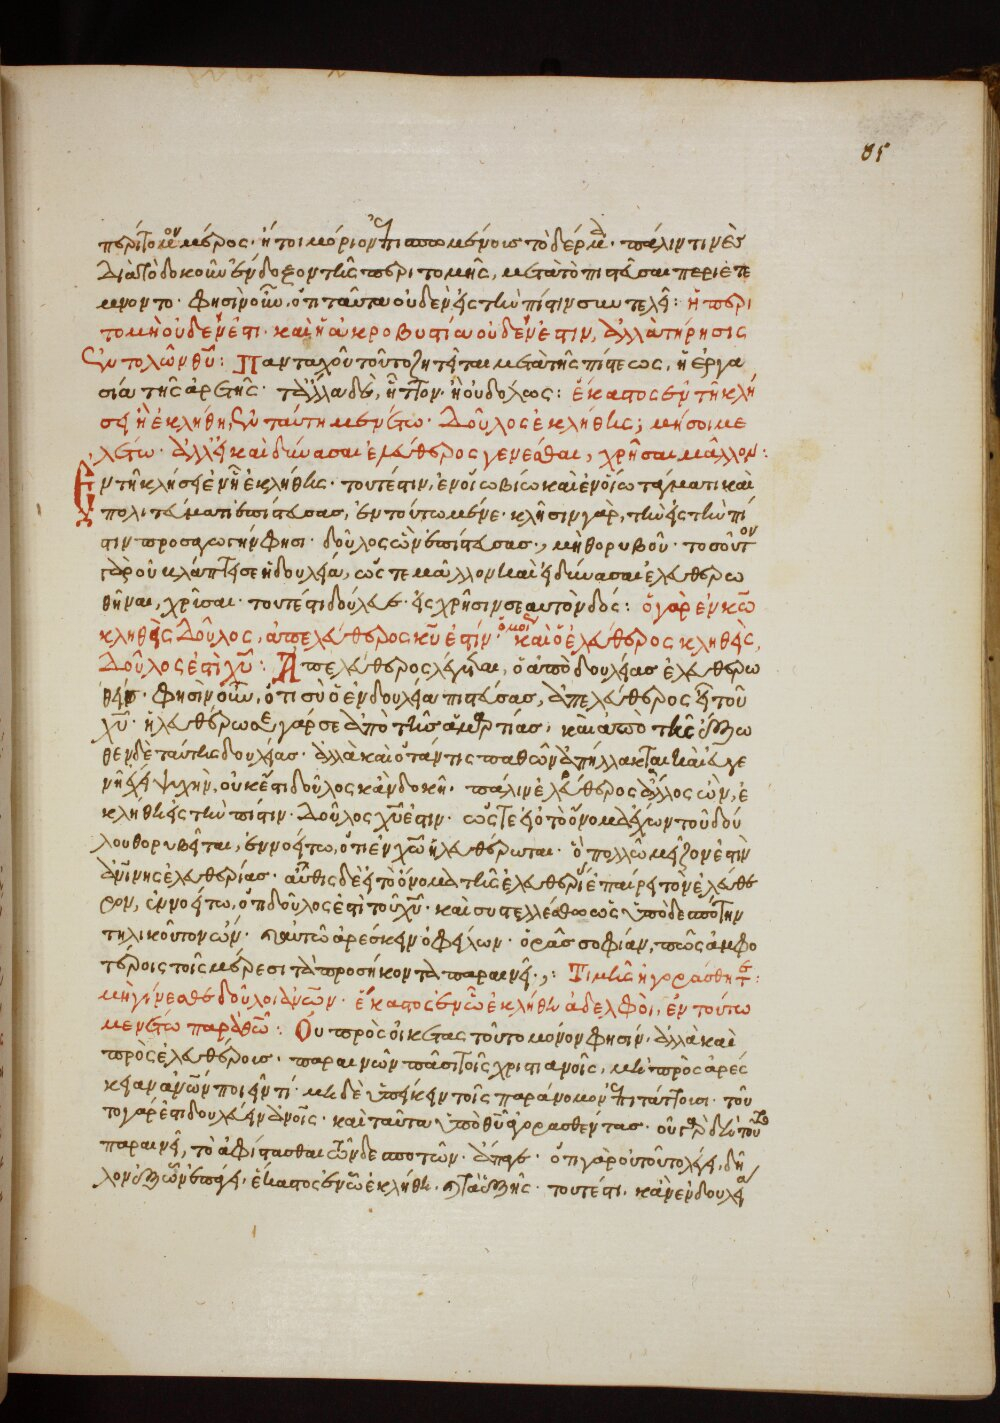 85
περίτομον μέρος· ἤτοι μόριον ἐπισπωμένοις τὸ δέρμα· πάλιν τινὲς
διὰ τὸ δοκοῦν ἔνδοξον τῆς περιτομῆς, μετὰ τὸ πιστεῦσαι περιετέ
μνοντο· φησὶν οὖν, ὅτι ταῦτα οὐδὲν εἰς τὴν πίστιν συντελεῖ: ἡ περι
τομὴ οὐδέν ἐστι· καὶ ἡ ἀκροβυστία οὐδέν ἐστιν, ἀλλὰ τήρησις
ἐντολῶν θυ: Πανταχοῦ τοῦτο ζητεῖται μετὰ τῆς πίστεως, ἡ ἐργα
σία τῆς ἀρετῆς· τὰ ἄλλα δὲ, ἧττον· ἢ οὐδόλως: ἕκαστος ἐν τῇ κλή
σει ᾗ ἐκλήθη, ἐν ταύτῃ μενέτω· Δοῦλος ἐκλήθης; μή σοι με
λέτω· ἀλλ' εἰ καὶ δύνασαι ἐλεύθερος γενέσθαι, χρῆσαι μᾶλλον:
Ἐν τῇ κλήσει ἐν ᾗ ἐκλήθης· τουτέστιν, ἐν οἵω βίω καὶ ἐν οἵω τάγματι καὶ
πολιτεύματι ἐπίστευσας, ἐν τούτω μένε· κλῆσιν γὰρ, τὴν εἰς τὴν πί
στιν προσαγωγήν φησι· δοῦλος ὢν ἐπίστευσας, μὴ θορυβοῦ· τοσοῦτον
γὰρ οὐ βλάπτει σε ἡ δουλεία, ὥστε μᾶλλον καὶ εἰ δύνασαι ἐλευθερω
θῆναι, χρῆσαι· τουτέστι δούλευε· εἰς χρῆσιν σεαυτὸν δός: ὁ γὰρ ἐν κω
κληθεὶς Δοῦλος, ἀπελεύθερος κυ ἐστίν· ὁμοί καὶ ὁ ἐλεύθερος κληθεὶς,
Δοῦλος ἐστὶ χυ: Ἀπελεύθερος λέγεται, ὁ ἀπὸ δουλείας ἐλευθερω
θείς· φησὶν οὖν, ὅτι σὺ ὁ ἐν δουλεία πιστεύσας, ἀπελεύθερος εἶ τοῦ
χυ· ἠλευθέρωσε γάρ σε ἀπὸ τῆς ἁμαρτίας, καὶ ἀπὸ τῆς ἔξω
θεν δὲ ταύτης δουλείας· ἀλλὰ καὶ ὅταν τις παθῶν ἀπήλλακται καὶ εὐγε
νῆ ἔχει ψυχὴν, οὐκέτι δοῦλος κἂν δοκῇ· πάλιν ἐλεύθερος ἄλλος ὢν, ἐ
κλήθη εἰς τὴν πίστιν· Δοῦλος χυ ἐστιν· ὥστε εἰ ὁ τὸ ὄνομα ἔχων τοῦ δού
λου θορυβεῖται, ἐννοείτω, ὅτι ἐν χω ἠλευθέρωται· ὃ πολλῶ μεῖζον ἐστὶν
ἀνίνης ἐλευθερίας· αὖθις δὲ εἰ τὸ ὄνομα τῆς ἐλευθερίας ἐπαίρει τὸν ἐλεύθε
ρον, ἐννοείτω, ὅτι δοῦλος ἐστὶ τοῦ χυ· καὶ συστελλέσθω ὡς ὑπὸ δεσπότην
τηλικοῦτον ὢν· αὐτῶ ἀρέσκειν ὀφείλων· ὁρᾶς σοφίαν, πῶς ἀμφο
τέροις τοῖς μέρεσι τὰ προσήκοντα παραινεῖ·,: Τιμῆς ἠγοράσθητε:
μὴ γίνεσθε δοῦλοι ἀνων· ἕκαστος ἐν ὧ ἐκλήθη ἀδελφοὶ, ἐν τούτω
μενέτω παρὰ θω: Οὐ πρὸς οἰκέτας τοῦτο μόνον φησὶν· ἀλλὰ καὶ
πρὸς ἐλευθέροις· παραινῶν πᾶσι τοῖς χριστιανοῖς, μὴ πρὸς ἀρέσ
κειαν ἀνων ποιεῖν τί· μὴ δὲ ὑπείκειν τοῖς παράνομον ἐπιτάττουσι· τοῦ
το γάρ ἐστι δουλεύειν ἀνοις· καὶ ταῦτα ὑπὸ θυ ἀγορασθέντας· οὐ γὰρ δὴ τοῦτο
παραινεῖ, τὸ ἀφίστασθαι τῶν δεσποτῶν· ἄπαγε· ὅτι γὰρ οὐ τοῦτο λέγει, δῆ
λον ἐξ ὧν ἐπάγει· ἕκαστος ἐν ὧ ἐκλήθη, καὶ τὰ ἑξῆς· τουτέστι· κἂν ἐν δουλεία